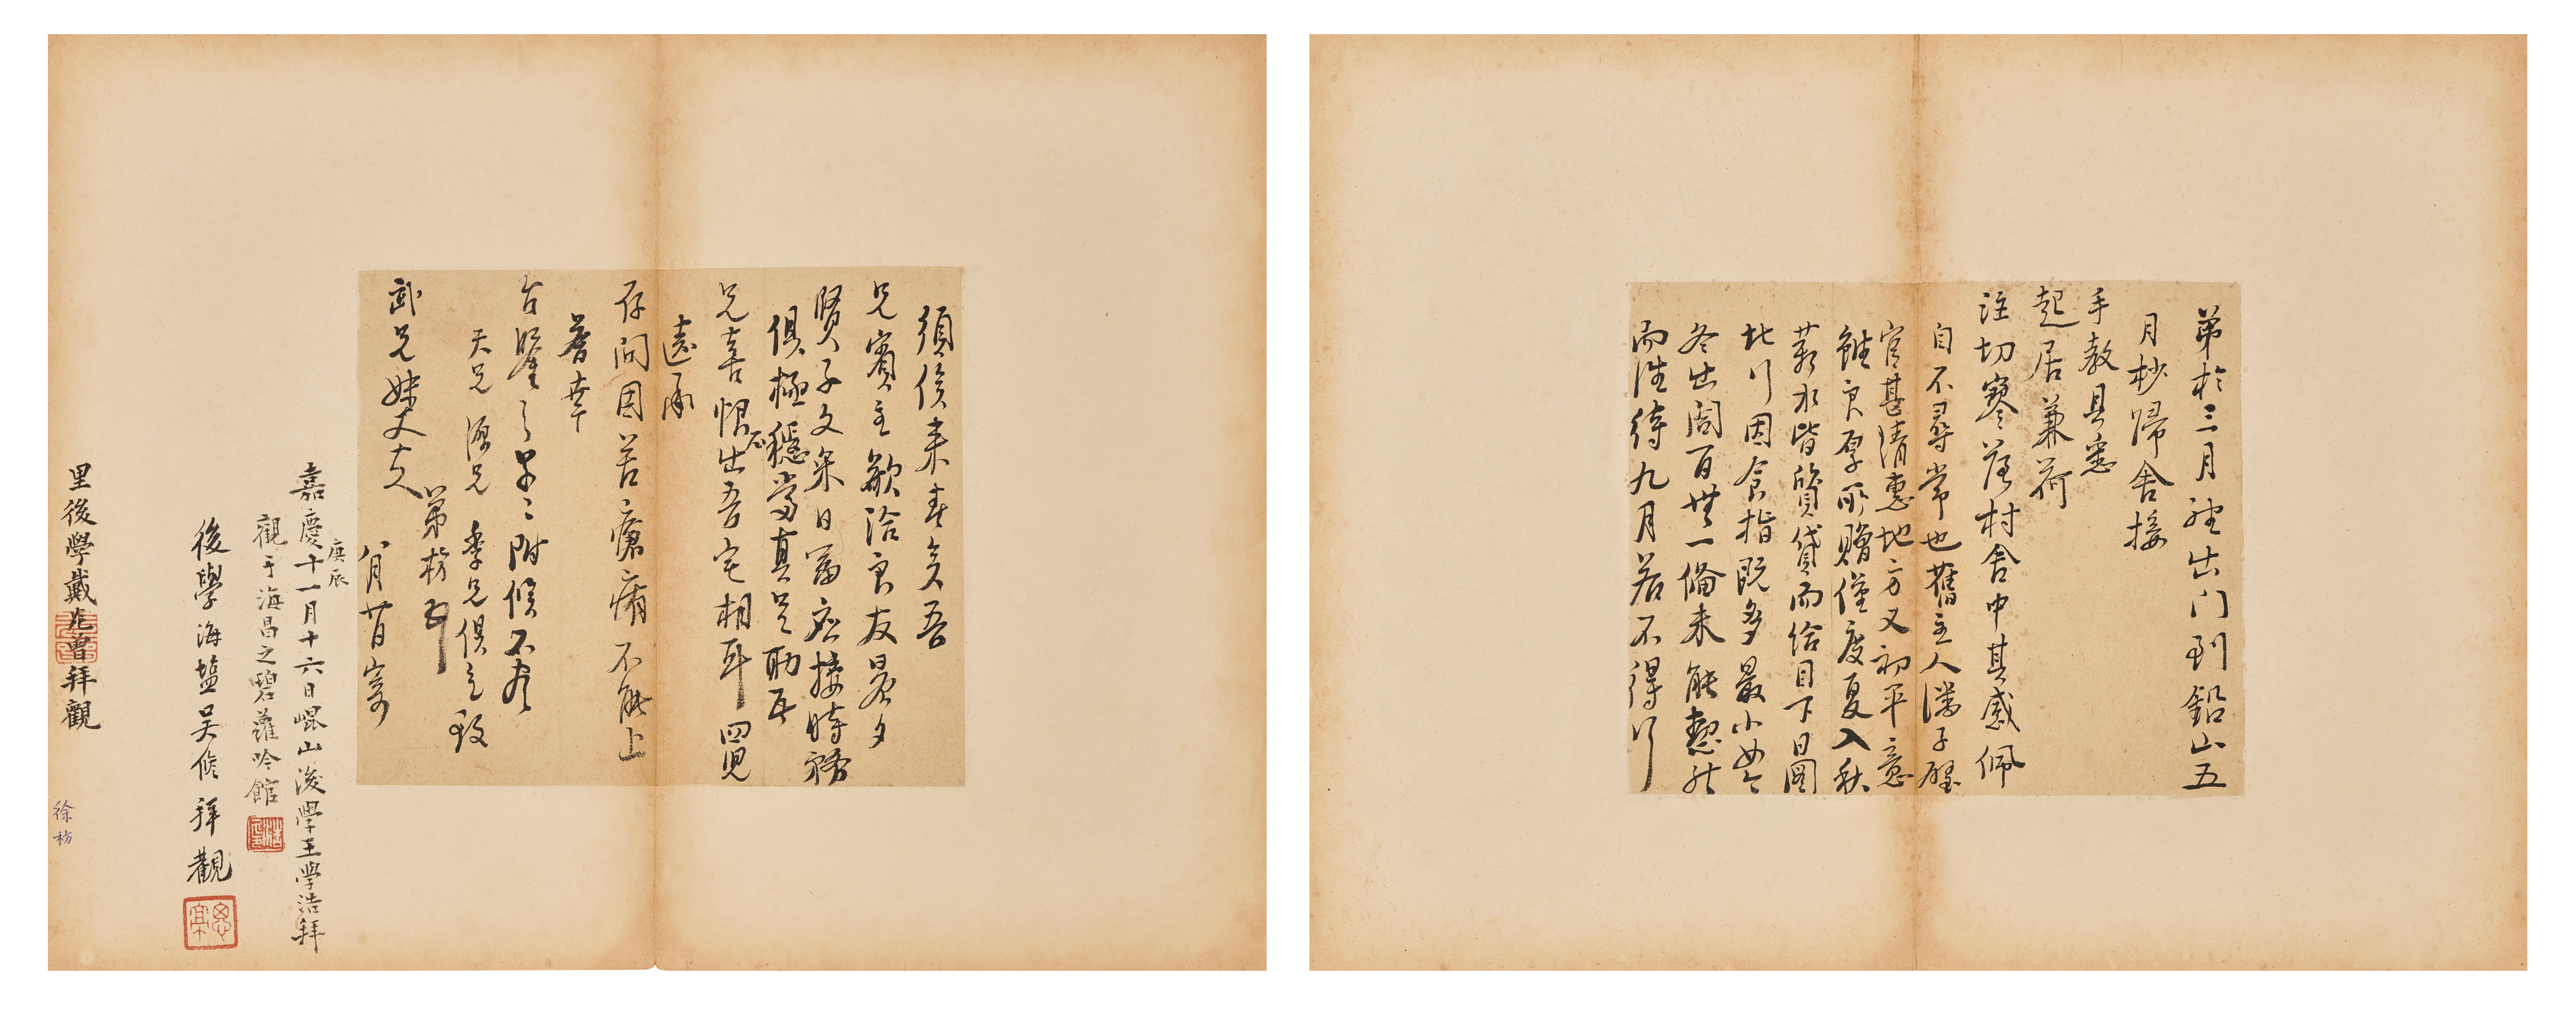 弟於三月殘出门到鉛山五
月杪歸舍接
手教具悉
起居兼荷
注切寥落村舍中其感佩
自不尋常也舊主人潘子壁
官甚清惠地方又初平意
雖良厚所贈僅度夏入秋
薪水皆質貸而給目下日圖
北行因食指既多最小女今
冬出閣百無一備未能恝然
而往待九月若不得行
須俟來春矣吾
兄賓主歡洽良友晨夕
賢子文采日富應接時務
俱極穩當真足助吾
兄喜恨不出吾宅相耳四児
遠承
存問因苦瘡痏不能上
荅幸
台鑒之草草附候不盡
天兄 源兄 季兄俱乞致
弟枋
武兄妹丈大人 八月廿日寄
庚辰
嘉慶十一月十六日崐山後學王學浩拜
觀于海昌之碧蘿吟館
後學海鹽吴修拜觀
里後學戴光曾拜觀
徐枋